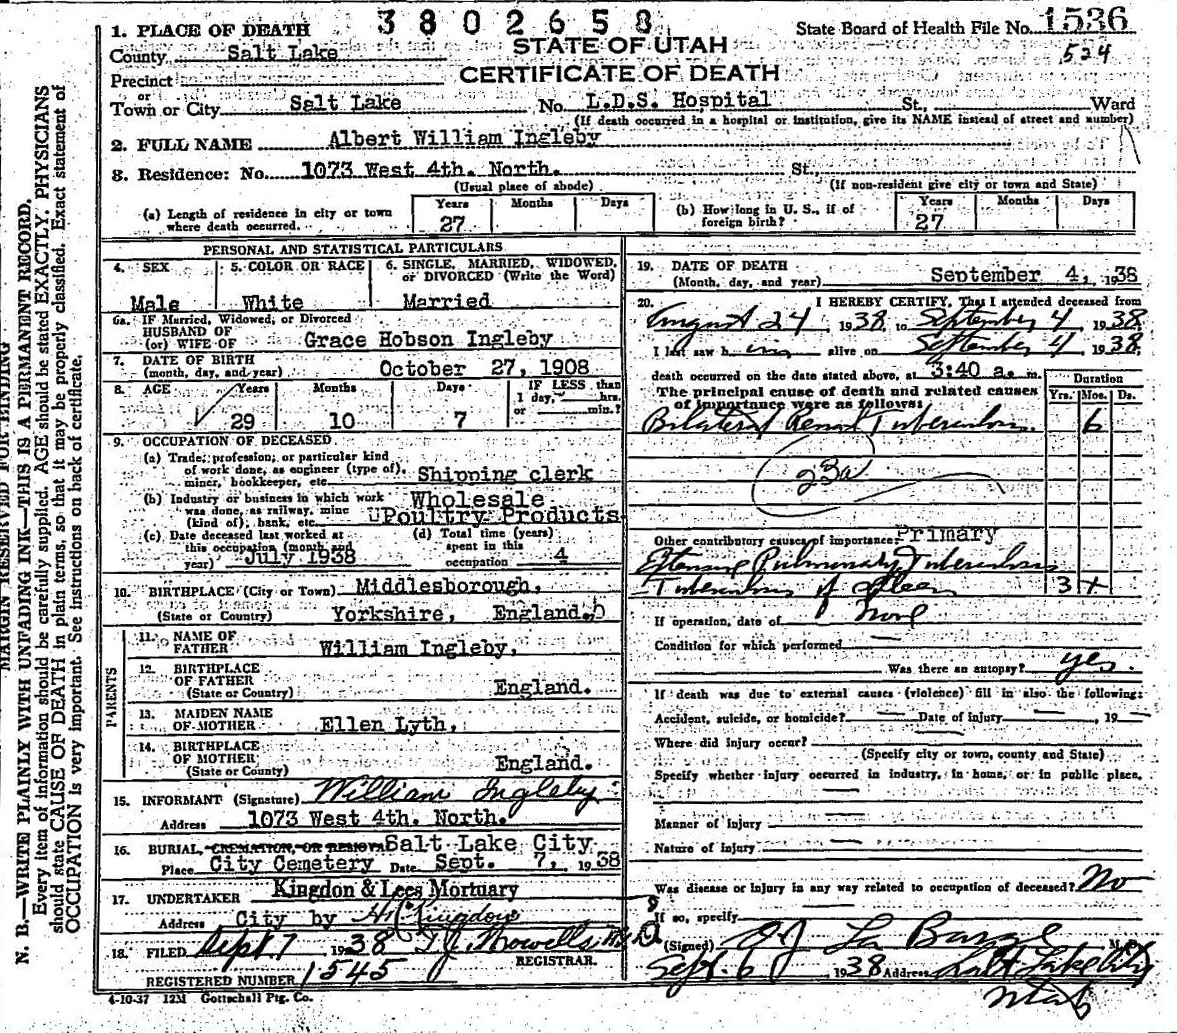 3802658
State Board of Health File No. 1536
524
STATE OF UTAH
CERTIFICATE OF DEATH
1. PLACE OF DEATH
County Salt Lake
Precinct
or
Town or City Salt Lake No. L.D.S. Hospital St., Ward
(If death occurred in a hospital or institution, give its NAME instead of street and number)
2. FULL NAME Albert William Ingleby
3. Residence: No. 1073 West 4th. North. St.,
(Usual place of abode) (If non-resident give city or town and State)
(a) Length of residence in city or town where death occurred. Years 27 Months Days
(b) How long in U. S., if of foreign birth? Years 27 Months Days
PERSONAL AND STATISTICAL PARTICULARS
4. SEX Male
5. COLOR OR RACE White
6. SINGLE, MARRIED, WIDOWED, or DIVORCED (Write the Word) Married
6a. IF Married, Widowed, or Divorced
HUSBAND OF
(or) WIFE OF Grace Hobson Ingleby
7. DATE OF BIRTH
(month, day, and year) October 27, 1908
8. AGE Years 29 Months 10 Days 7 IF LESS than 1 day, hrs. or min.?
9. OCCUPATION OF DECEASED
(a) Trade, profession, or particular kind
of work done, as engineer (type of),
miner, bookkeeper, etc. Shipping clerk
(b) Industry or business in which work
was done, as railway, mine
(kind of), bank, etc. Wholesale Poultry Products
(c) Date deceased last worked at
this occupation (month and
year) July 1938
(d) Total time (years)
spent in this
occupation 4
10. BIRTHPLACE (City or Town) Middlesborough,
(State or Country) Yorkshire, England.
PARENTS
11. NAME OF
FATHER William Ingleby,
12. BIRTHPLACE
OF FATHER
(State or Country) England.
13. MAIDEN NAME
OF MOTHER Ellen Lyth,
14. BIRTHPLACE
OF MOTHER
(State or County) England.
15. INFORMANT (Signature) William Ingleby
Address 1073 West 4th. North.
16. BURIAL, CREMATION, OR REMOVAL Salt Lake City
Place City Cemetery Date Sept. 7, 1938
17. UNDERTAKER Kingdon & Lees Mortuary
Address City by Kingdon
18. FILED Sept. 7 1938 T.J. Howells
REGISTRAR.
REGISTERED NUMBER 1545
4-10-37 12M Gottschall Ptg. Co.
19. DATE OF DEATH
(Month, day, and year) September 4, 1938
20. I HEREBY CERTIFY, That I attended deceased from
August 24, 1938, to September 4 1938,
I last saw him alive on September 4, 1938,
death occurred on the date stated above, at 3:40 a. m.
The principal cause of death and related causes
of importance were as follows:
Duration
Yrs. Mos. Ds.
Bilateral Renal Tuberculosis. 6
23a
Other contributory causes of importance: Primary
Extensive Pulmonary Tuberculosis
Tuberculosis of 3 +
If operation, date of None
Condition for which performed
Was there an autopsy? yes.
If death was due to external causes (violence) fill in also the following:
Accident, suicide, or homicide? Date of injury , 19
Where did injury occur?
(Specify city or town, county and State)
Specify whether injury occurred in industry, in home, or in public place.
Manner of Injury
Nature of injury
Was disease or injury in any way related to occupation of deceased? No
If so, specify
(Signed) La Barge M. D.
Sept. 6, 1938 Address Salt Lake City
Utah
MARGIN RESERVED FOR BINDING
N. B.—WRITE PLAINLY WITH UNFADING INK—THIS IS A PERMANENT RECORD.
Every item of information should be carefully supplied. AGE should be stated EXACTLY. PHYSICIANS
should state CAUSE OF DEATH in plain terms, so that it may be properly classified. Exact statement of
OCCUPATION is very important. See instructions on back of certificate.